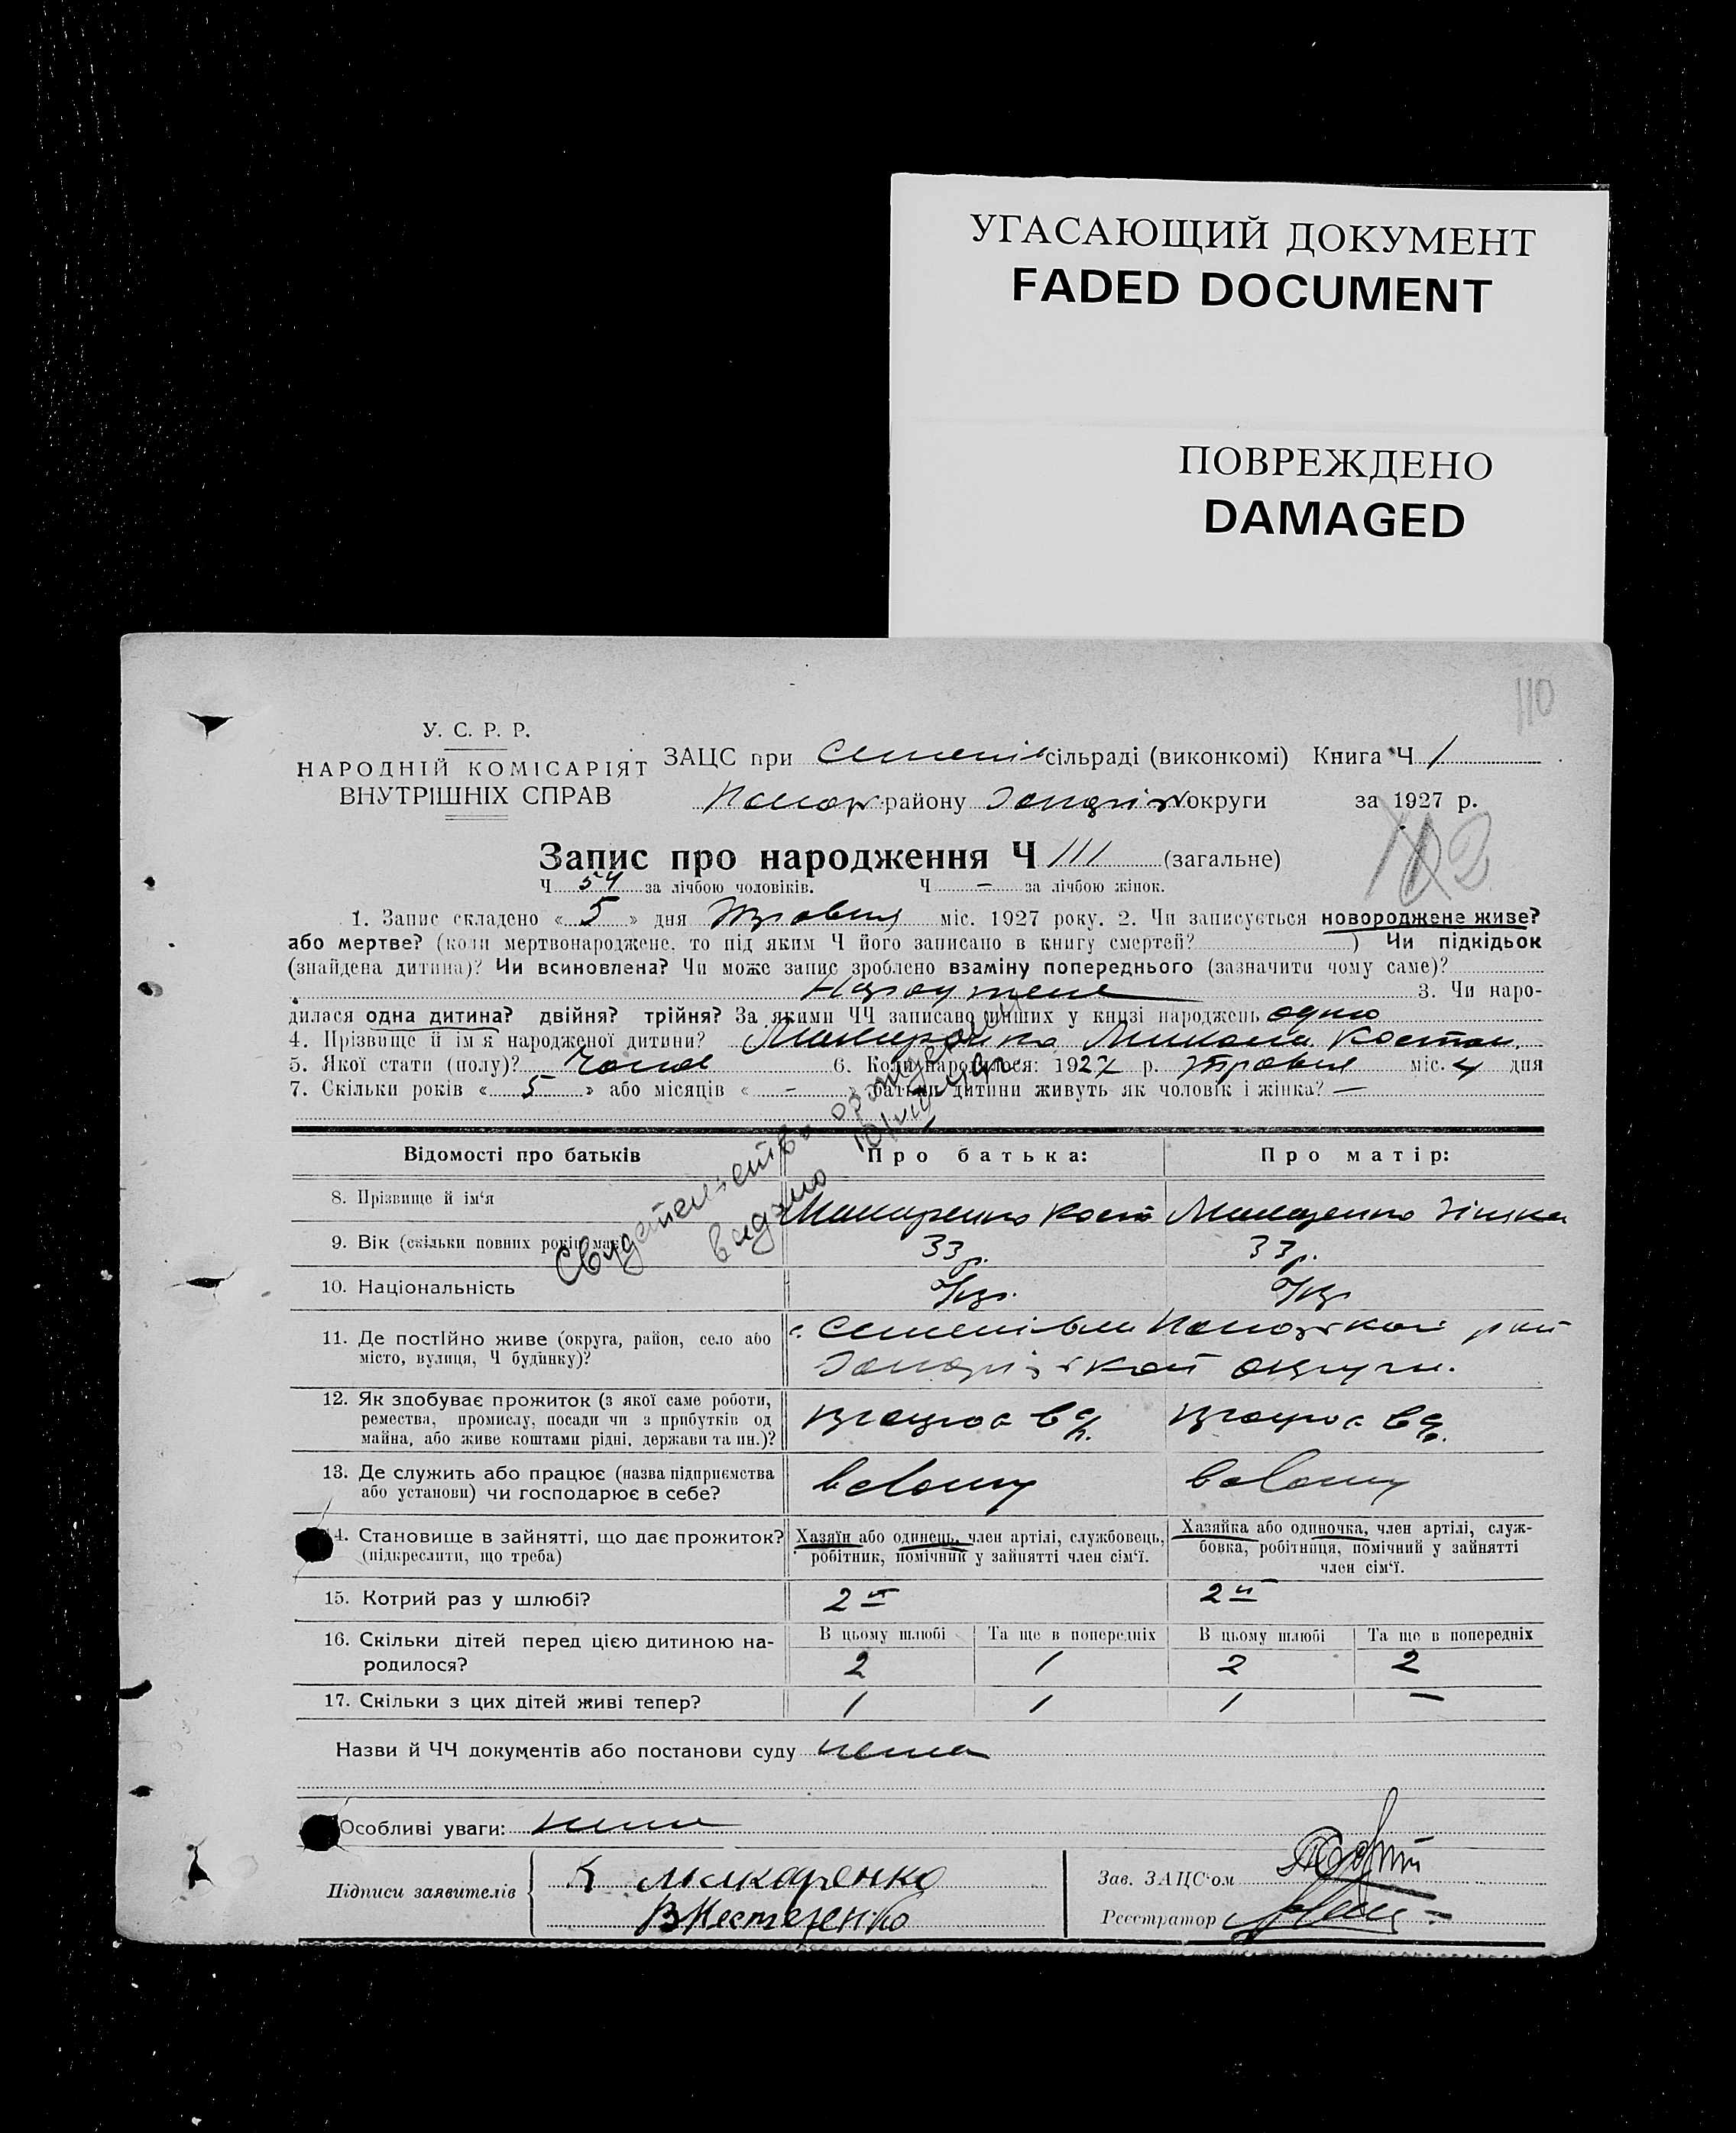 УГАСАЮЩИЙ ДОКУМЕНТ
FADED DOCUMENT
ПОВРЕЖДЕНО
DAMAGED
110
У. С. Р. Р.
НАРОДНІЙ КОМІСАРІЯТ
ВНУТРІШНІХ СПРАВ
ЗАЦС при сільраді (виконкомі) Книга Ч 1
району округи за 1927 р.
Запис про народження Ч 111 (загальне)
Ч 54 за лічбою чоловіків. Ч – за лічбою жінок.
1. Запис складено « 5 » дня травня міс. 1927 року. 2. Чи записується новороджене живе?
або мертве? (коли мертвонароджене, то під яким Ч його записано в книгу смертей? ) Чи підкідьок
(знайдена дитина)? Чи всиновлена? Чи може запис зроблено взаміну попереднього (зазначити чому саме)?
3. Чи наро-
дилася одна дитина? двійня? трійня? За якими ЧЧ записано инших у книзі народжень одно
4. Прізвище й ім'я народженої дитини? Микола Костан.
5. Якої стати (полу)? Чолов 6. Коли народилося: 1927 р. травня міс. 4 дня
7. Скільки років « 5 » або місяців « - » батьки дитини живуть як чоловік і жінка? —
Свидетельство о рождении
видано
Відомості про батьків
Про батька:
Про матір:
8. Прізвище й ім'я Макаренко Кост
9. Вік (скільки повних років має) 33 р. 33 р.
10. Національність Укр. Укр
11. Де постійно живе (округа, район, село або
місто, вулиця, Ч будинку)?
с. Семенівка рай
округи.
12. Як здобуває прожиток (з якої саме роботи,
ремества, промислу, посади чи з прибутків од
майна, або живе коштами рідні, держави та ин.)?
13. Де служить або працює (назва підприємства
або установи) чи господарює в себе?
14. Становище в зайнятті, що дає прожиток?
(підкреслити, що треба)
Хазяїн або одинець, член артілі, службовець,
робітник, помічний у зайнятті член сім'ї.
Хазяйка або одиночка, член артілі, служ-
бовка, робітниця, помічний у зайнятті
член сім'ї.
15. Котрий раз у шлюбі? 2й 2й
16. Скільки дітей перед цією дитиною на-
родилося?
В цьому шлюбі Та ще в попередніх В цьому шлюбі Та ще в попередніх
2 1 2 2
17. Скільки з цих дітей живі тепер? 1 1 1 —
Назви й ЧЧ документів або постанови суду нема
Особливі уваги: нема
Підписи заявителів
К Макаренко
В Нестеренко
Зав. ЗАЦС'ом
Реєстратор